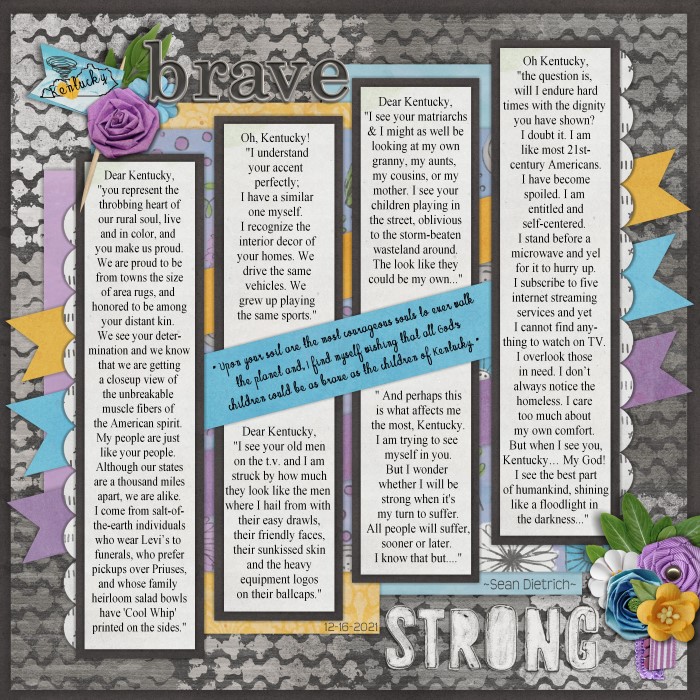 Kentucky
brave
Dear Kentucky,
"you represent the
throbbing heart of
our rural soul, live
and in color, and
you make us proud.
We are proud to be
from towns the size
of area rugs, and
honored to be among
your distant kin.
We see your deter-
mination and we know
that we are getting
a closeup view of
the unbreakable
muscle fibers of
the American spirit.
My people are just
like your people.
Although our states
are a thousand miles
apart, we are alike.
I come from salt-of-
the-earth individuals
who wear Levi`s to
funerals, who prefer
pickups over Priuses,
and whose family
heirloom salad bowls
have 'Cool Whip'
printed on the sides."
Oh, Kentucky!
"I understand
your accent
perfectly;
I have a similar
one myself.
I recognize the
interior decor of
your homes. We
drive the same
vehicles. We
grew up playing
the same sports."
Dear Kentucky,
"I see your old men
on the t.v. and I am
struck by how much
they look like the men
where I hail from with
their easy drawls,
their friendly faces,
their sunkissed skin
and the heavy
equipment logos
on their ballcaps."
Dear Kentucky,
"I see your matriarchs
& I might as well be
looking at my own
granny, my aunts,
my cousins, or my
mother. I see your
children playing in
the street, oblivious
to the storm-beaten
wasteland around.
The look like they
could be my own..."
" Upon your soil are the most courageous souls to ever walk
the planet and, I find myself wishing that all God's
children could be as brave as the children of Kentucky."
" And perhaps this
is what affects me
the most, Kentucky.
I am trying to see
myself in you.
But I wonder
whether I will be
strong when it's
my turn to suffer.
All people will suffer,
sooner or later.
I know that but...."
Oh Kentucky,
"the question is,
will I endure hard
times with the dignity
you have shown?
I doubt it. I am
like most 21st-
century Americans.
I have become
spoiled. I am
entitled and
self-centered.
I stand before a
microwave and yel
for it to hurry up.
I subscribe to five
internet streaming
services and yet
I cannot find any-
thing to watch on TV.
I overlook those
in need. I don`t
always notice the
homeless. I care
too much about
my own comfort.
But when I see you,
Kentucky… My God!
I see the best part
of humankind, shining
like a floodlight in
the darkness..."
~Sean Dietrich~
12-16-2021
STRONG